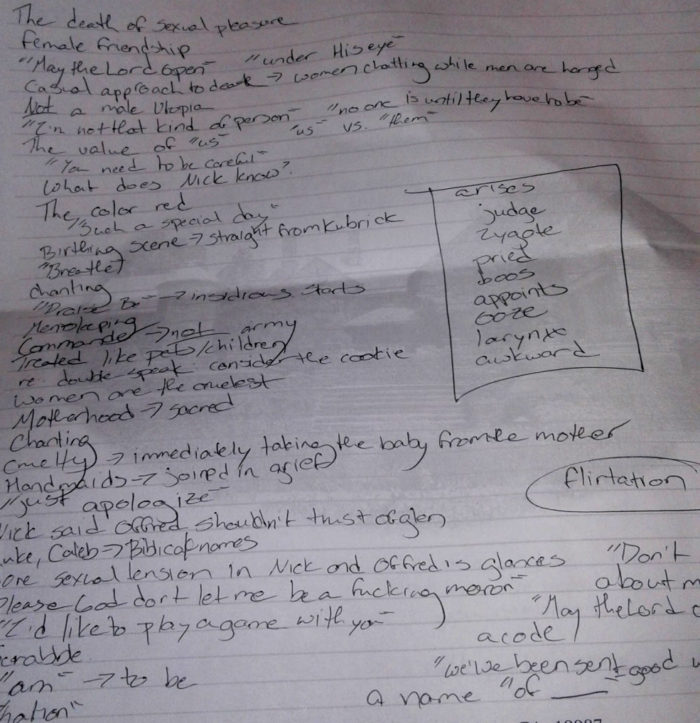 The death of sexual pleasure
female friendship
"May the Lord open" "under His eye"
Casual approach to death → women chatting while men are hanged
Not a male Utopia
"I'm not that kind of person" "no one is until they have to be"
The value of "us" "us" vs. "them"
"You need to be careful"
What does Nick know?
The color red
"Such a special day"
Birthing scene → straight from Kubrick
"Breathe"
Chanting
"Praise Be" → insidious starts
Commander → not army
Treated like pets/children
re: double speak consider the cookie
Women are the cruelest
Motherhood → sacred
Chanting
Cruelty → immediately taking the baby from the mother
Handmaids → joined in grief
"just apologize"
Nick said Offred shouldn't trust Ofglen
uke, Caleb → Biblical names
ore sexual tension in Nick and Offred's glances
Please God don't let me be a fucking moron
"I'd like to play a game with you"
crabble
"am" → to be
hation"
arises
judge
zygote
pried
boos
appoints
ooze
larynx
awkward
flirtation
"Don't
about m
"May the Lord o
a code
"we've been sent good w
a name "of ___"